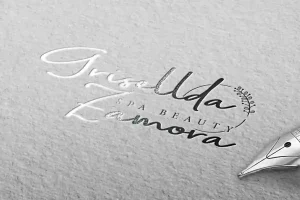 Grisellda
SPA BEAUTY
Zamora